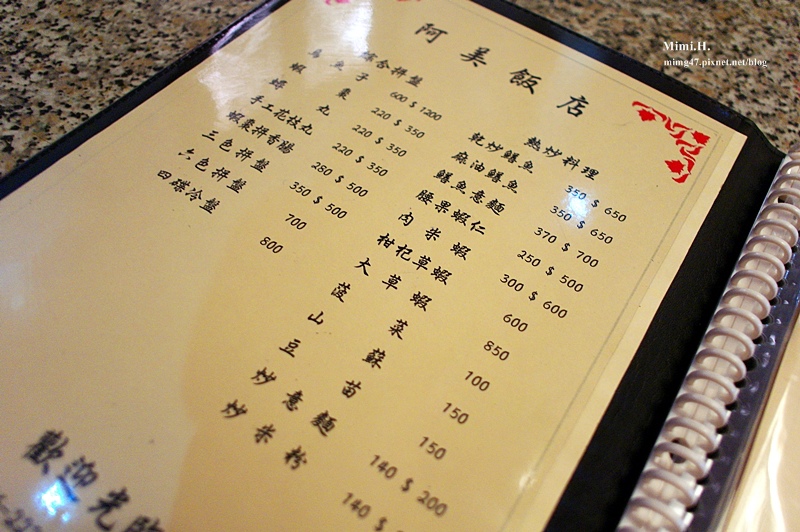 Mimi.H.
mimg47.pixnet.net/blog
阿美飯店
綜合拼盤 600 $ 1200
烏魚子
蝦棗 220 $ 350
爆丸 220 $ 350
手工花枝丸 220 $ 350
蝦棗拼香腸 280 $ 500
三色拼盤 350 $ 500
六色拼盤 700
四碟冷盤 800
熱炒料理
乾炒鱔魚 350 $ 650
麻油鱔魚 350 $ 650
鱔魚意麵 370 $ 700
腰果蝦仁 250 $ 500
肉米蝦 300 $ 600
枸杞草蝦 600
大草蝦 850
菠菜 100
山蘇 150
豆苗 150
炒意麵 140 $ 200
炒米粉 140 $
歡迎光臨